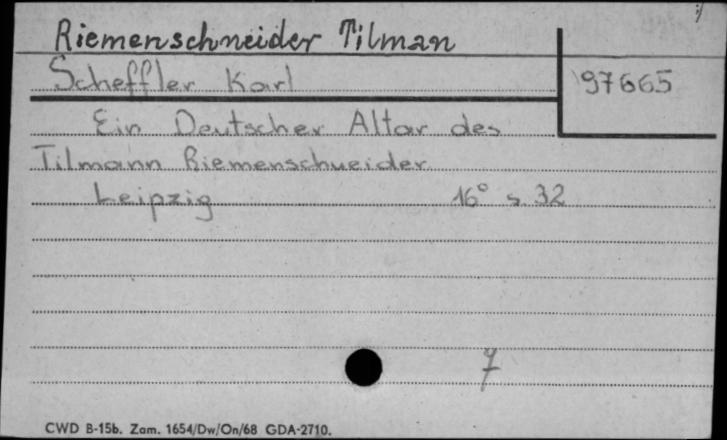 Riemenschneider Tilman
Scheffler Karl
97665
Ein Deutscher Altar des
Tilmann Riemenschneider
Leipzig 16° s. 32
7
CWD B-15b. Zam. 1654/Dw/On/68 GDA-2710.